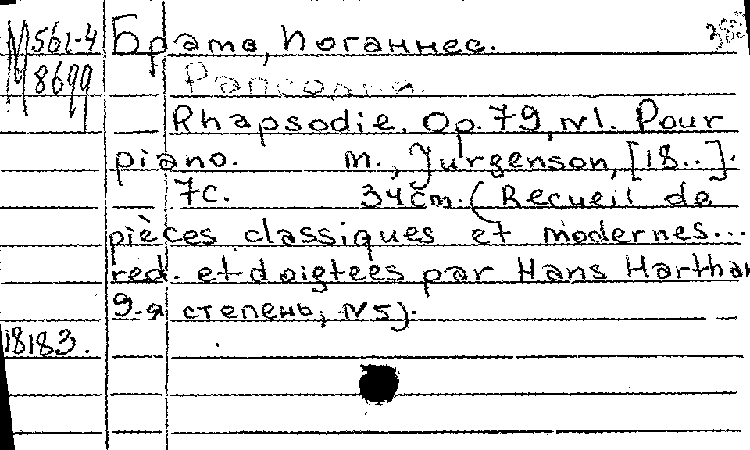 М561-4 Брамс, Иоганнес.
8699 Рапсодия.
Rhapsodie. Op. 79, N1. Pour
piano. м., Jurgenson, [18..].
7с. 34см. (Recueil de
pièces classiques et modernes...
red. et doigtees par Hans Harthan
9-я степень, N5).
18183.